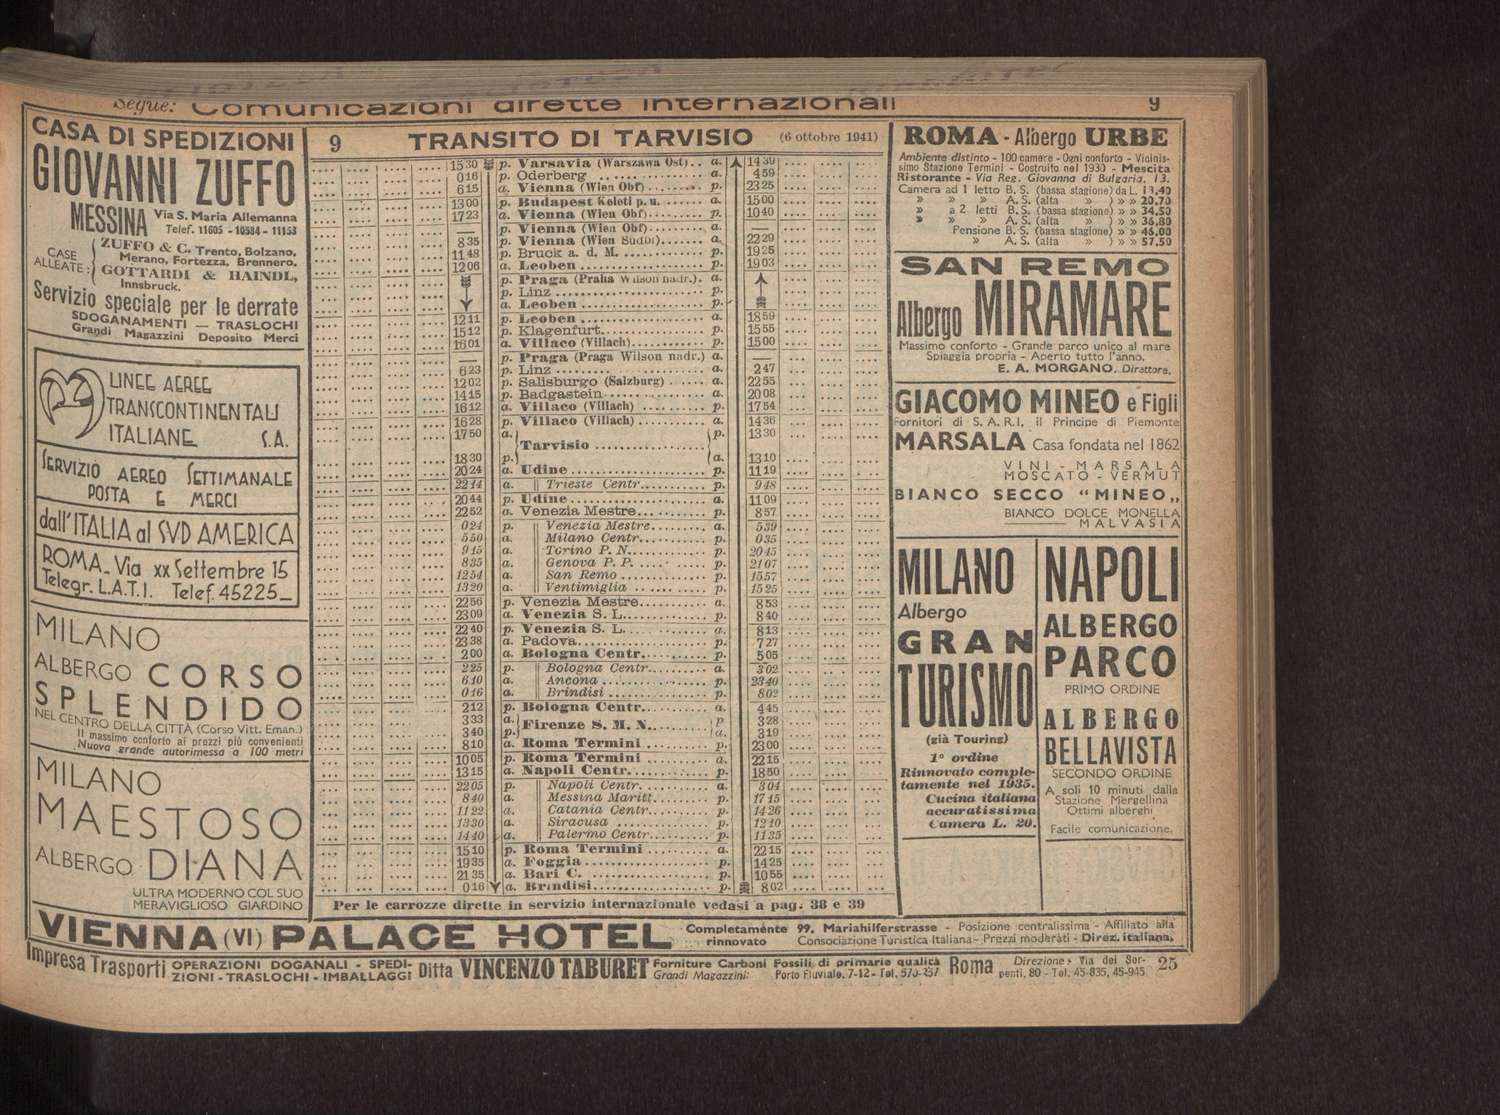 Segue: Comunicazioni dirette internazionali 9
CASA DI SPEDIZIONI
GIOVANNI ZUFFO
MESSINA Via S. Maria Allemanna
Telef. 11605 - 10584 - 11153
CASE ALLEATE: ZUFFO & C. Trento, Bolzano,
Merano, Fortezza, Brennero,
GOTTARDI & HAINDL,
Innsbruck.
Servizio speciale per le derrate
SDOGANAMENTI — TRASLOCHI
Grandi Magazzini Deposito Merci
LINEE AEREE
TRANSCONTINENTALI
ITALIANE S.A.
SERVIZIO AEREO SETTIMANALE
POSTA E MERCI
dall'ITALIA al SUD AMERICA
ROMA - Via XX Settembre 15
Telegr. L.A.T.I. Telef. 45225
MILANO
ALBERGO CORSO
SPLENDIDO
NEL CENTRO DELLA CITTÀ (Corso Vitt. Eman.)
Il massimo conforto ai prezzi più convenienti
Nuova grande autorimessa a 100 metri
MILANO
MAESTOSO
ALBERGO DIANA
ULTRA MODERNO COL SUO
MERAVIGLIOSO GIARDINO
9 TRANSITO DI TARVISIO (6 ottobre 1941)
15 30 p. Varsavia (Warszawa Ost) .. a. 14 39
0 16 p. Oderberg ...... a. 4 59
6 15 a. Vienna (Wien Obf) ...... p. 23 25
13 00 p. Budapest Keleti p. u. ...... a. 15 00
17 23 a. Vienna (Wien Obf) ...... p. 10 40
— p. Vienna (Wien Obf) ...... a. —
8 35 p. Vienna (Wien Sudbf) ...... a. 22 29
11 48 p. Bruck a. d. M. ...... p. 19 25
12 06 a. Leoben ...... p. 19 03
p. Praga (Praha Wilson nadr.). a.
p. Linz ...... p.
a. Leoben ...... p.
12 11 p. Leoben ...... a. 18 59
15 12 p. Klagenfurt ...... p. 15 55
16 01 a. Villaco (Villach) ...... p. 15 00
— p. Praga (Praga Wilson nadr.) a. —
6 23 p. Linz ...... a. 2 47
12 02 p. Salisburgo (Salzburg) ...... a. 22 55
14 15 p. Badgastein ...... a. 20 08
16 12 a. Villaco (Villach) ...... p. 17 54
16 28 p. Villaco (Villach) ...... a. 14 36
17 50 a. Tarvisio ...... p. 13 30
18 30 p. a. 13 10
20 24 a. Udine ...... p. 11 19
22 14 a. Trieste Centr. ...... p. 9 48
20 44 p. Udine ...... a. 11 09
22 52 a. Venezia Mestre ...... p. 8 57
0 24 p. Venezia Mestre ...... a. 5 39
5 50 a. Milano Centr. ...... p. 0 35
9 15 a. Torino P. N. ...... p. 20 45
8 35 a. Genova P. P. ...... p. 21 07
12 54 a. San Remo ...... p. 15 57
13 20 a. Ventimiglia ...... p. 15 25
22 56 p. Venezia Mestre ...... a. 8 53
23 09 a. Venezia S. L. ...... p. 8 40
22 40 p. Venezia S. L. ...... a. 8 13
23 38 a. Padova ...... p. 7 27
2 00 a. Bologna Centr. ...... p. 5 05
2 25 p. Bologna Centr. ...... a. 3 02
6 10 a. Ancona ...... p. 23 40
0 16 a. Brindisi ...... p. 8 02
2 12 p. Bologna Centr. ...... a. 4 45
3 33 a. Firenze S. M. N. ...... p. 3 28
3 40 p. a. 3 19
8 10 a. Roma Termini ...... p. 23 00
10 05 p. Roma Termini ...... a. 22 15
13 15 a. Napoli Centr. ...... p. 18 50
22 05 p. Napoli Centr. ...... a. 3 04
8 40 a. Messina Maritt. ...... p. 17 15
11 22 a. Catania Centr. ...... p. 14 26
13 30 a. Siracusa ...... p. 12 10
14 40 a. Palermo Centr. ...... p. 11 35
15 10 p. Roma Termini ...... a. 22 15
19 35 a. Foggia ...... p. 14 25
21 35 a. Bari C. ...... p. 10 55
0 16 a. Brindisi ...... p. 8 02
Per le carrozze dirette in servizio internazionale vedasi a pag. 38 e 39
ROMA - Albergo URBE
Ambiente distinto - 100 camere - Ogni conforto - Vicinis-
simo Stazione Termini - Costruito nel 1930 - Mescita
Ristorante - Via Reg. Giovanna di Bulgaria, 13.
Camera ad 1 letto B. S. (bassa stagione) da L.
» » » A. S. (alta » ) » » 20,70
» a 2 letti B. S. (bassa stagione) » » 34,50
» » » A. S. (alta » ) » » 36,80
Pensione B. S. (bassa stagione) » » 46,00
» A. S. (alta » ) » » 57,50
SAN REMO
Albergo MIRAMARE
Massimo conforto - Grande parco unico al mare
Spiaggia propria - Aperto tutto l'anno.
E. A. MORGANO, Direttore.
GIACOMO MINEO e Figli
Fornitori di S. A. R. I. il Principe di Piemonte
MARSALA Casa fondata nel 1862
VINI - MARSALA
MOSCATO - VERMUT
BIANCO SECCO "MINEO„
BIANCO DOLCE MONELLA
MALVASIA
MILANO
Albergo
GRAN
TURISMO
(già Touring)
1° ordine
Rinnovato comple-
tamente nel 1935.
Cucina italiana
accuratissima
Camera L. 20.
NAPOLI
ALBERGO
PARCO
PRIMO ORDINE
ALBERGO
BELLAVISTA
SECONDO ORDINE
A soli 10 minuti dalla
Stazione Mergellina
Ottimi alberghi
Facile comunicazione.
VIENNA (VI) PALACE HOTEL Completamente rinnovato 99, Mariahilferstrasse - Posizione centralissima - Affiliato alla
Consociazione Turistica Italiana - Prezzi moderati - Direz. italiana.
Impresa Trasporti OPERAZIONI DOGANALI - SPEDI-
ZIONI - TRASLOCHI - IMBALLAGGI Ditta VINCENZO TABURET Forniture Carboni Fossili di primarie qualità
Grandi Magazzini: Porto Fluviale, 7-12 - Tel. 570-257 Roma Direzione: Via dei Ser-
penti, 80 - Tel. 45-835, 45-945 25